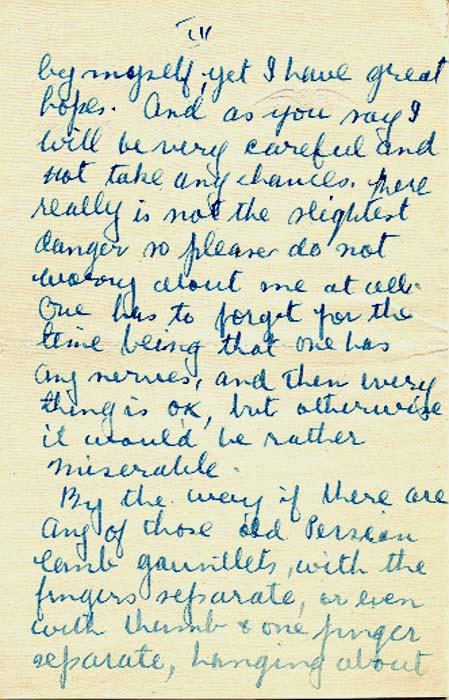 III
by myself, yet I have great
hopes. And as you say I
will be very careful and
not take any chances. There
really is not the slightest
danger so please do not
worry about me at all.
One has to forget for the
time being that one has
any nerves, and then every
thing is OK, but otherwise
it would be rather
miserable.
By the way if there are
any of those old Persian
lamb gauntlets, with the
fingers separate, or even
with thumb & one finger
separate, hanging about